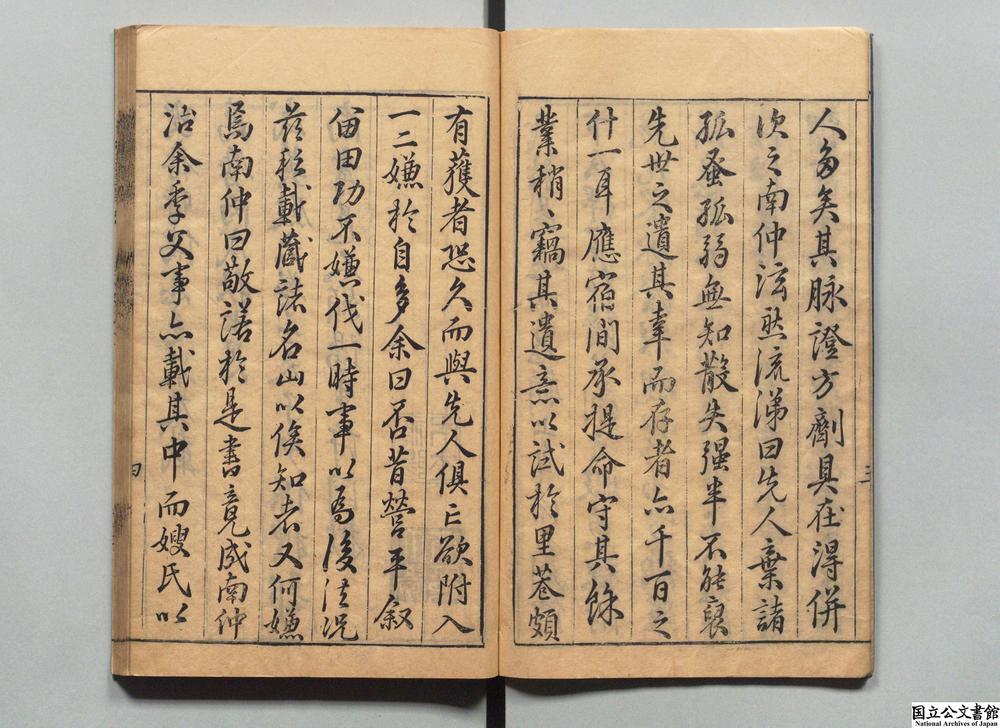 人多矣其脉證方劑具在得併
次之南仲泫然流涕曰先人棄諸
孤蚤孤弱無知散失强半不能裒
先世之遺其幸而存者亦千百之
什一耳應宿間承提命守其餘
業稍〻竊其遺意以試於里巷頗
三
有獲者恐久而與先人俱亡欲附入
一二嫌於自多余曰否昔營平叙
留田功不嫌伐一時事以爲後法况
茲移載藏諸名山以俟知者又何嫌
焉南仲曰敬諾於是書竟成南仲
治余季父事亦載其中而嫂氏以
四
国立公文書館
National Archives of Japan